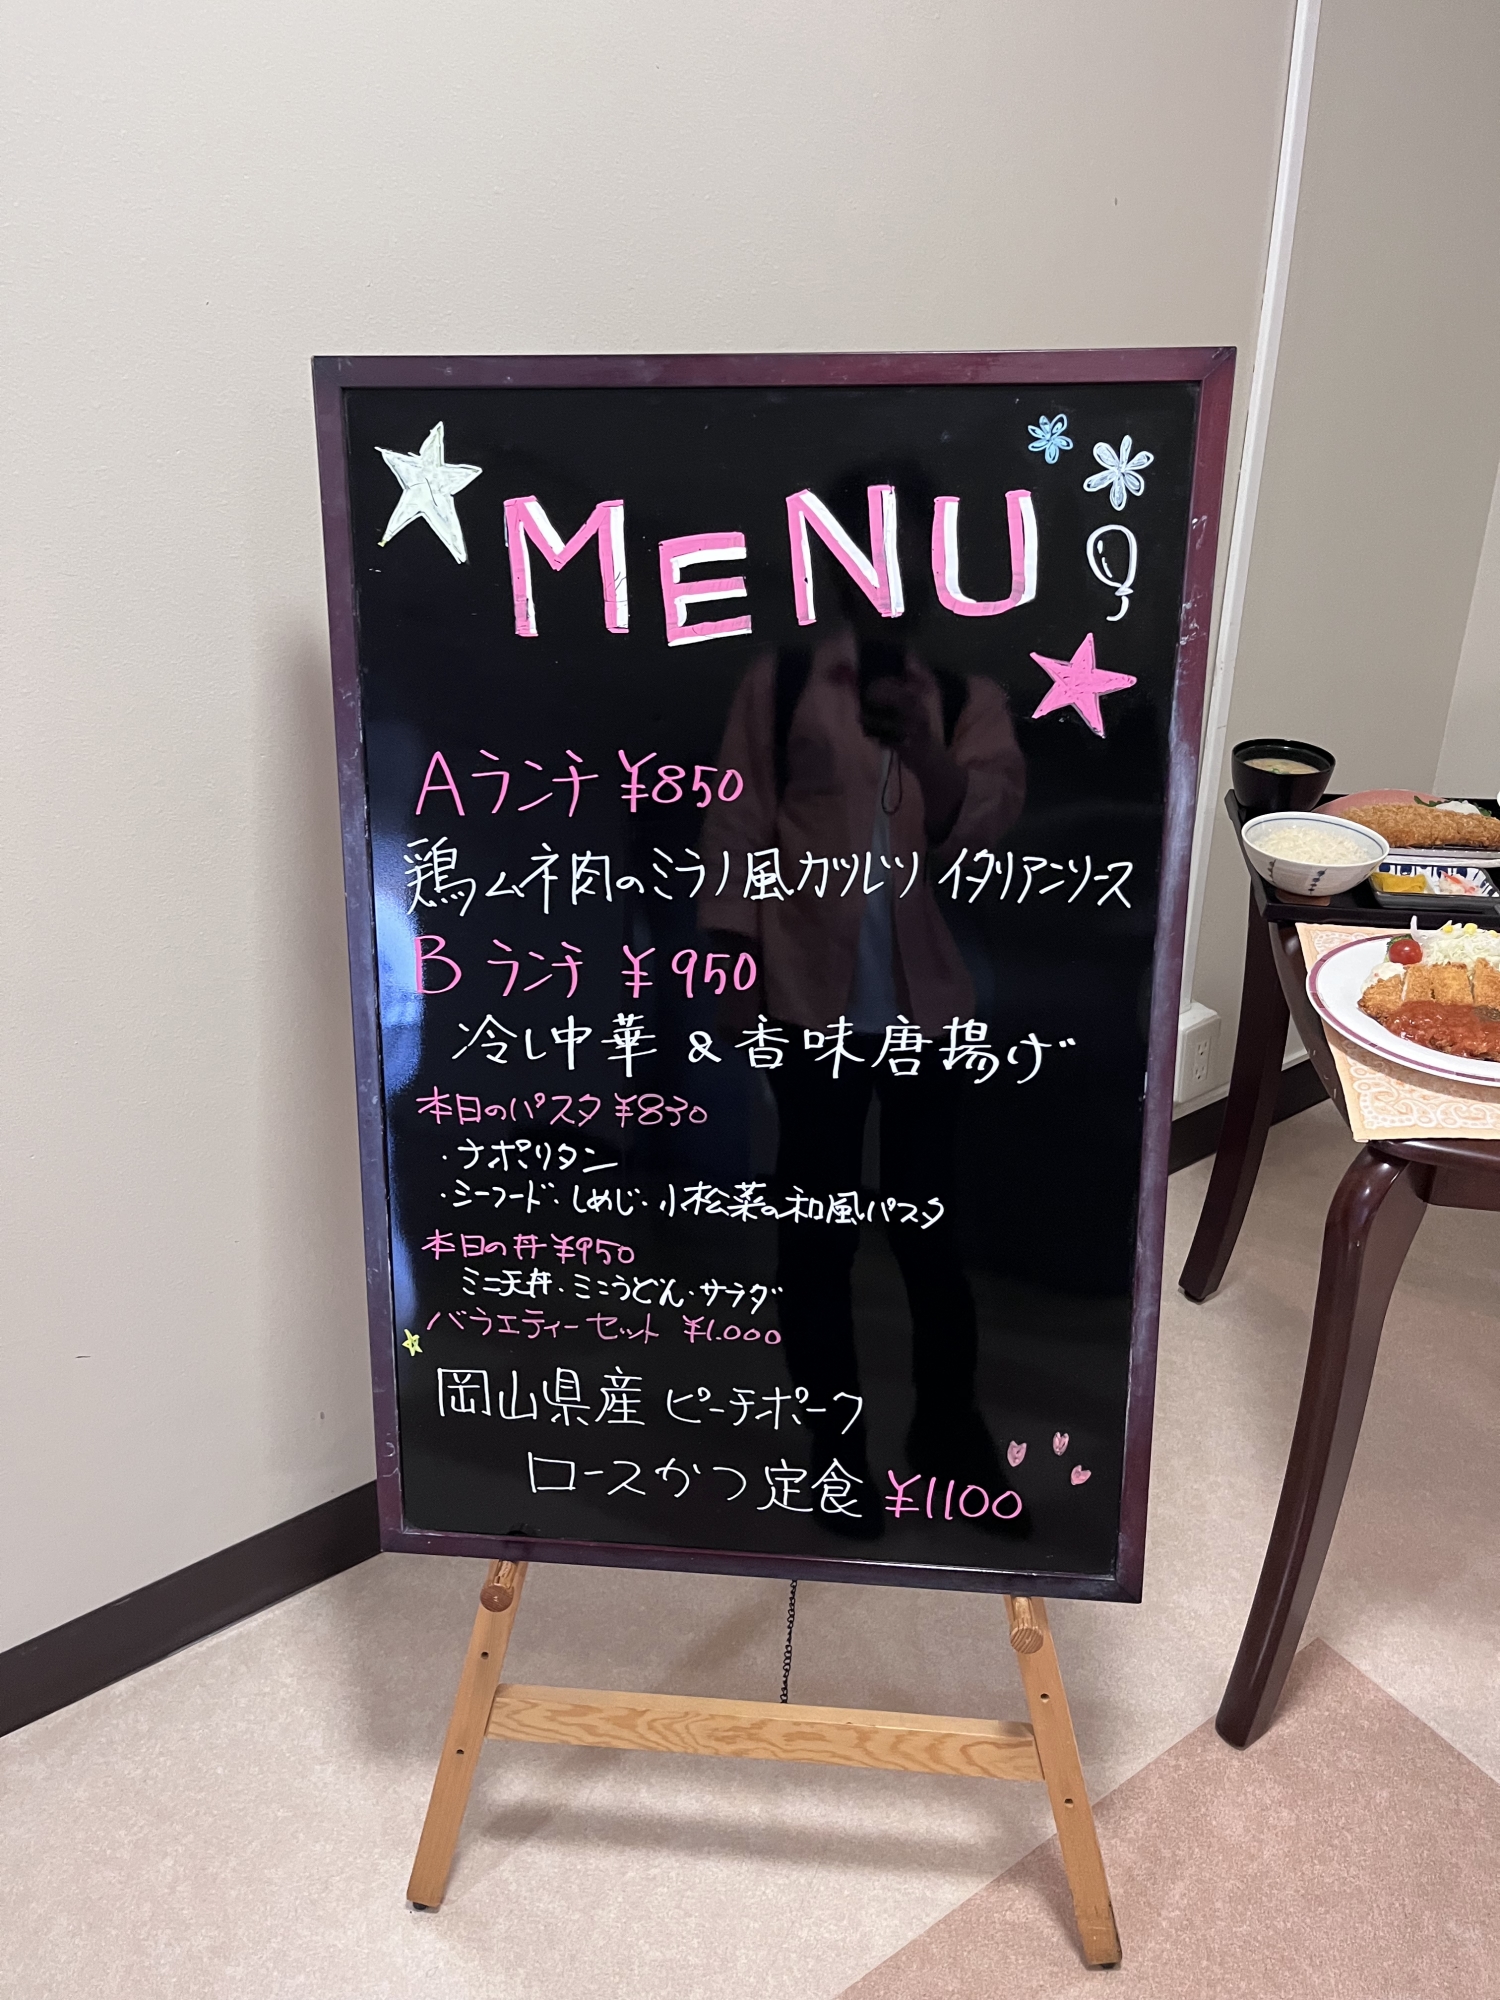 MENU
Aランチ ¥850
鶏ムネ肉のミラノ風カツレツ イタリアンソース
B ランチ ¥950
冷し中華 & 香味唐揚げ
本日のパスタ ¥830
・ナポリタン
・シーフード・しめじ・小松菜の和風パスタ
本日の丼 ¥950
ミニ天丼・ミニうどん・サラダ
バラエティーセット ¥1.000
岡山県産 ピーチポーク
ロースかつ定食 ¥1100